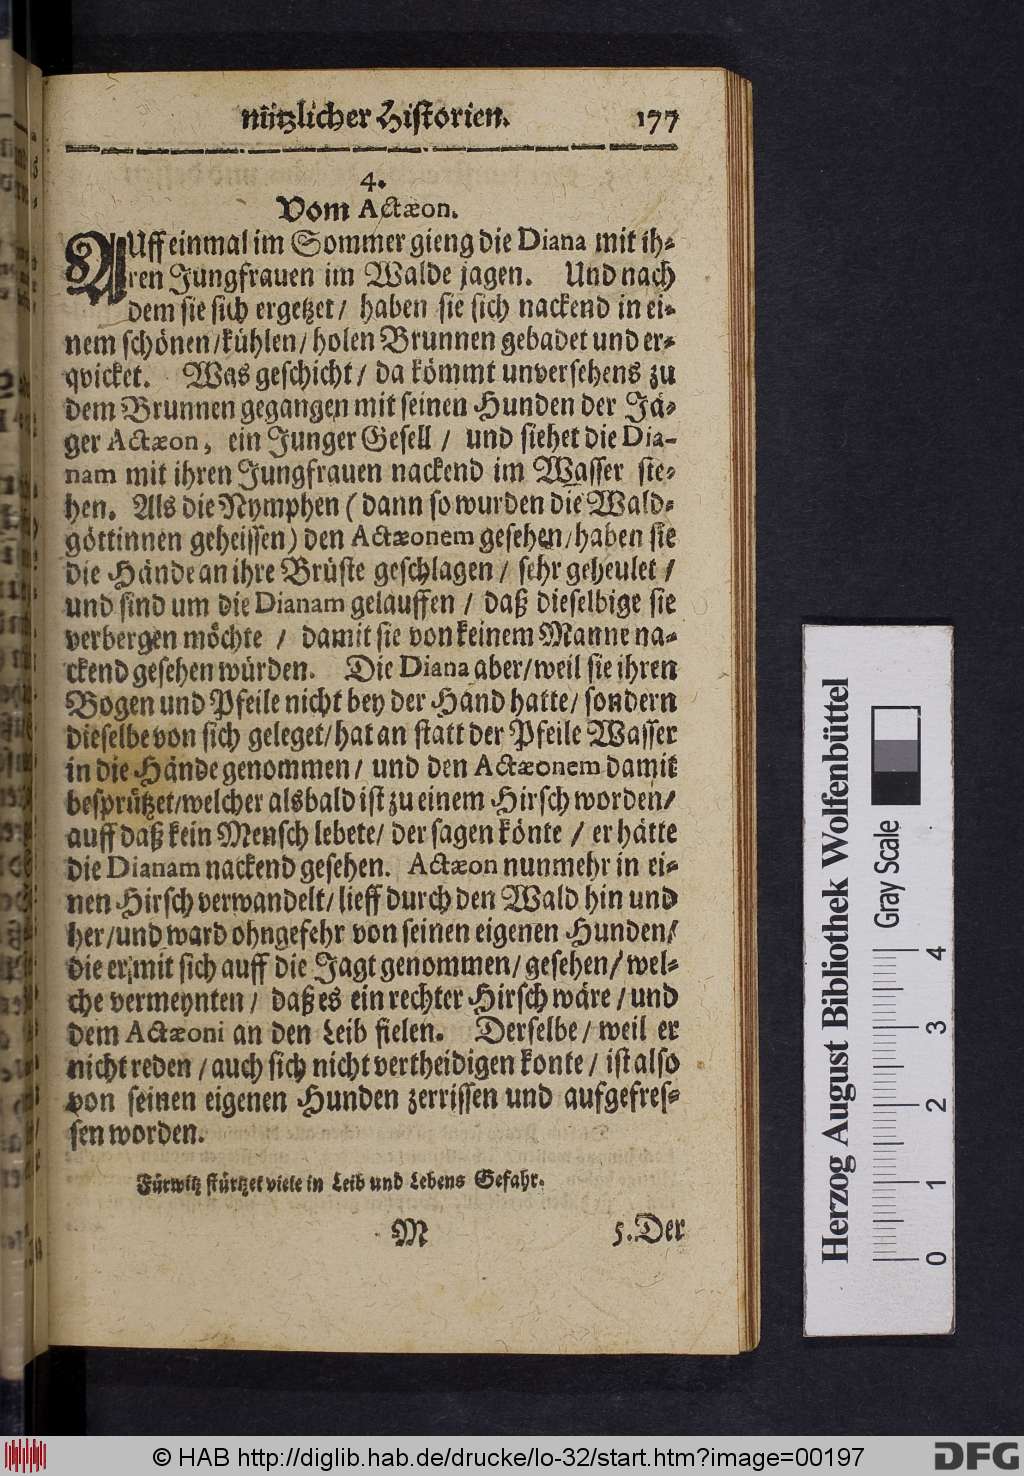 nützlicher Historien. 177
4.
Vom Actæon.
AUff einmal im Sommer gieng die Diana mit ih-
ren Jungfrauen im Walde jagen. Und nach
dem sie sich ergetzet / haben sie sich nackend in ei-
nem schönen / kühlen / holen Brunnen gebadet und er-
qvicket. Was geschicht / da kömmt unversehens zu
dem Brunnen gegangen mit seinen Hunden der Jä-
ger Actæon, ein Junger Gesell / und siehet die Dia-
nam mit ihren Jungfrauen nackend im Wasser ste-
hen. Als die Nymphen ( dann so wurden die Wald-
göttinnen geheissen ) den Actæonem gesehen / haben sie
die Hände an ihre Brüste geschlagen / sehr geheulet /
und sind um die Dianam gelauffen / daß dieselbige sie
verbergen möchte / damit sie von keinem Manne na-
ckend gesehen würden. Die Diana aber / weil sie ihren
Bogen und Pfeile nicht bey der Hand hatte / sondern
dieselbe von sich geleget / hat an statt der Pfeile Wasser
in die Hände genommen / und den Actæonem damit
besprützet / welcher alsbald ist zu einem Hirsch worden /
auff daß kein Mensch lebete / der sagen könte / er hätte
die Dianam nackend gesehen. Actæon nunmehr in ei-
nen Hirsch verwandelt / lieff durch den Wald hin und
her / und ward ohngefehr von seinen eigenen Hunden /
die er mit sich auff die Jagt genommen / gesehen / wel-
che vermeynten / daß es ein rechter Hirsch wäre / und
dem Actæoni an den Leib fielen. Derselbe / weil er
nicht reden / auch sich nicht vertheidigen konte / ist also
von seinen eigenen Hunden zerrissen und aufgefres-
sen worden.
Fürwitz stürtzet viele in Leib und Lebens Gefahr.
M 5. Der
Herzog August Bibliothek Wolfenbüttel
Gray Scale
0 1 2 3 4
© HAB http://diglib.hab.de/drucke/lo-32/start.htm?image=00197
DFG